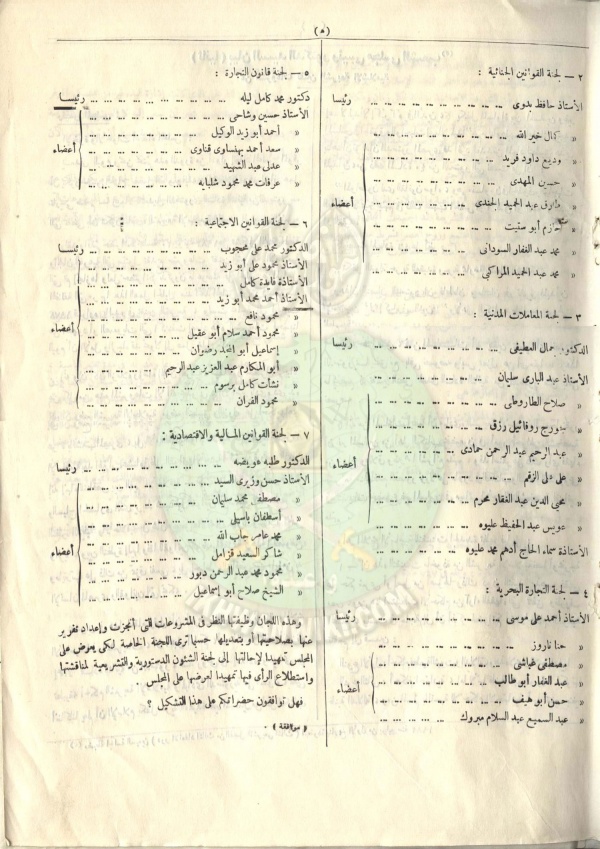 (٥)
٢ — لجنة القوانين الجنائية :
الأستاذ حافظ بدوى ... ... ... رئيسا
» كمال خير الله ... ... ...
» وديع داود فريد ... ... ...
» حسن المهدى ... ... ...
» طارق عبد الحميد الجندى ... ... ...
» حازم أبو ستيت ... ... ...
» محمد عبد الغفار السودانى ... ... ...
» محمد عبد الحميد المراكبى ... ... ...
أعضاء
٣ — لجنة المعاملات المدنية :
الدكتور جمال العطيفى ... ... ... رئيسا
الأستاذ عبد البارى سليمان ... ... ...
» صلاح الطاروطى ... ... ...
» جورج روفائيل رزق ... ... ...
» عبد الرحيم عبد الرحمن حمادى ... ... ...
» على على الزقم ... ... ...
» محيى الدين عبد الغفار محرم ... ... ...
» عويس عبد الحفيظ عليوه ... ... ...
الأستاذة سماء الحاج أدهم محمد عليوه ... ... ...
أعضاء
٤ — لجنة التجارة البحرية :
الأستاذ أحمد على موسى ... ... ... رئيسا
» حنا ناروز ... ... ...
» مصطفى غباشى ... ... ...
» عبد الغفار أبو طالب ... ... ...
» حسن أبو هيف ... ... ...
» عبد السميع عبد السلام مبروك ... ... ...
أعضاء
٥ — لجنة قانون التجارة :
دكتور محمد كامل ليله ... ... ... رئيسا
الأستاذ حسين وشاحى ... ... ...
» أحمد أبو زيد الوكيل ... ... ...
» سعد أحمد بهنساوى قناوى ... ... ...
» عدلى عبد الشهيد ... ... ...
» عرفات محمد محمود شلبايه ... ... ...
أعضاء
٦ — لجنة القوانين الاجتماعية :
الدكتور محمد على محجوب ... ... ... رئيسا
الأستاذ محمود على أبو زيد ... ... ...
الأستاذة فايدة كامل ... ... ...
الأستاذ أحمد محمد أبو زيد ... ... ...
» محمود نافع ... ... ...
» محمود أحمد سلام أبو عقيل ... ... ...
» إسماعيل أبو المجد رضوان ... ... ...
» أبو المكارم عبد العزيز عبد الرحيم ... ... ...
» نشأت كامل برسوم ... ... ...
» محمود الفران ... ... ...
أعضاء
٧ — لجنة القوانين المالية والاقتصادية :
الدكتور طلبه عويضه ... ... ... رئيسا
الأستاذ حسن وزيرى السيد ... ... ...
» مصطفى محمد سليمان ... ... ...
» أسطفان باسيلى ... ... ...
» محمد عامر جاب الله ... ... ...
» شاكر السعيد قزامل ... ... ...
» محمود محمد عبد الرحمن دبور ... ... ...
» الشيخ صلاح أبو إسماعيل ... ... ...
أعضاء
وهذه اللجان وظيفتها النظر فى المشروعات التى أنجزت وإعداد تقرير
عنها بصلاحيتها أو بتعديلها حسبما ترى اللجنة الخاصة لكى يعرض على
المجلس تمهيدا لإحالتها إلى لجنة الشئون الدستورية والتشريعية لمناقشتها
واستطلاع الرأى فيها تمهيدا لعرضها على المجلس .
فهل توافقون حضراتكم على هذا التشكيل ؟
( موافقة ) .